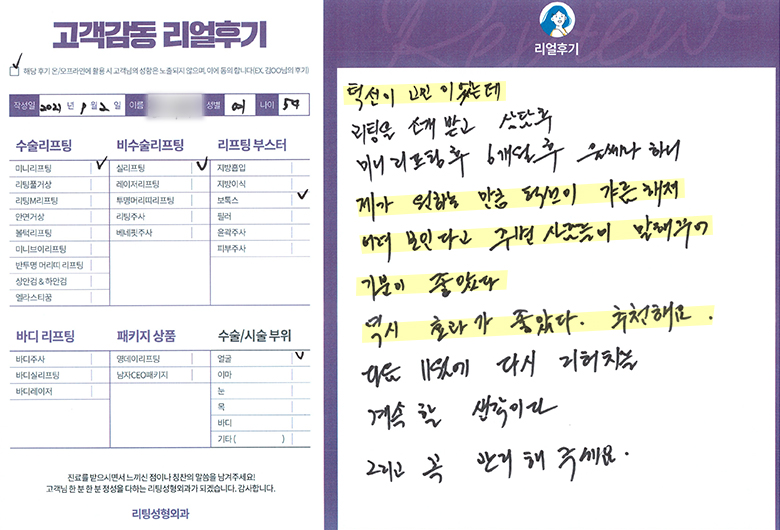 고객감동 리얼후기
해당 후기 온/오프라인에 활용 시 고객님의 성함은 노출되지 않으며, 이에 동의 합니다(EX. 김OO님의 후기)
작성일 2021년 1월 2일 이름 성별 여 나이 54
수술리프팅
미니리프팅
리팅풀거상
리팅M리프팅
안면거상
볼턱리프팅
미니브이리프팅
반투명 머리띠 리프팅
상안검 & 하안검
엘라스티꿈
비수술리프팅
실리프팅
레이저리프팅
투명머리띠리프팅
리팅주사
베네핏주사
리프팅 부스터
지방흡입
지방이식
보톡스
필러
윤곽주사
피부주사
바디 리프팅
바디주사
바디실리프팅
바디레이저
패키지 상품
영데이리프팅
남자CEO패키지
수술/시술 부위
얼굴
이마
눈
목
바디
기타 ( )
진료를 받으시면서 느끼신 점이나 칭찬의 말씀을 남겨주세요!
고객님 한 분 한 분 정성을 다하는 리팅성형외과가 되겠습니다. 감사합니다.
리팅성형외과
Review
리얼후기
턱선이 고민 이었는데
리팅을 소개 받고 상담후
미니 리프팅후 6개월후 울쎄라 하니
제가 원하는 만큼 턱선이 갸름 해져
어려 보인다고 주변 사람들이 말해주어
기분이 좋았다
역시 효과가 좋았다. 추천해요.
다음 11월에 다시 리터치를
계속 할 생각이다
그리고 꼭 관리 해 주세요.